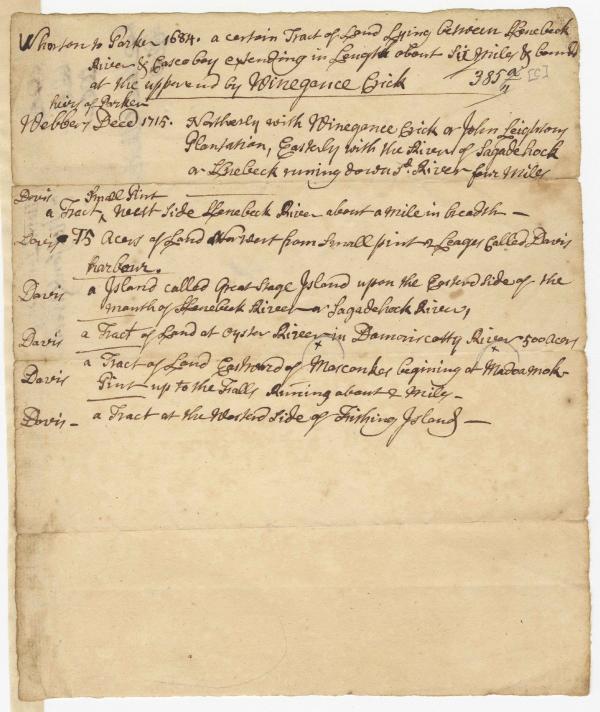 Wharton to Parker 1684. a certain Tract of Land Lying between Kenebeck
River & Casco bay extending in Length about Six Miles & bounded
at the upper end by Winegance Crick
385 a [c]
heirs of Parker
Webber, Decd 1715. Northerly with Winegance Crick or John Leightons
Plantation, Easterly with the River of Sagadehock
or Kenebeck runing down sd. River four Miles
Davis Small Pint
a Tract ‸ west side Kenebeck River about a mile in breadth —
75 Acers of Land Norwest from Small pint 2 Leages Called Davis
harbour.
Davis a Island called Great Stage Island upon the Easterd Side of the
mouth of Kenebeck River or Sagadehock River,
Davis a Tract of Land at Oyster River in Damariscotty River 500 Acers
a Tract of Land Eastward of Masconkes begining at Madoamok
Davis Pint up to the Falls Runing about 2 Mile —
Davis — a Tract at the Westerd Side of Fishing Island —